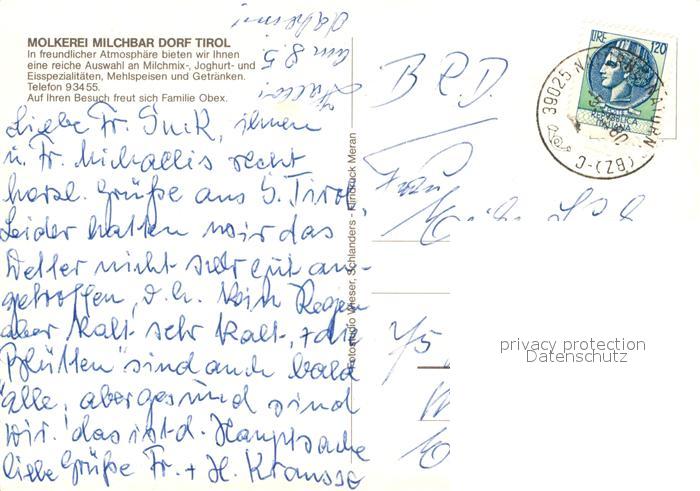 MOLKEREI MILCHBAR DORF TIROL
In freundlicher Atmosphäre bieten wir Ihnen
eine reiche Auswahl an Milchmix-, Joghurt- und
Eisspezialitäten, Mehlspeisen und Getränken.
Telefon 93455.
Auf Ihren Besuch freut sich Familie Obex.
Liebe Fr. ihnen
u. Fr. Michaelis recht
herzl. Grüße aus S. Tirol
Leider hatten wir das
Wetter nicht sehr gut an-
getroffen, d.h. kein Regen
aber kalt sehr kalt, + die
Blüten sind auch bald
alle, aber gesund sind
wir. das ist d. Hauptsache
liebe Grüße Fr. + H. Krausse
am 8.5.
daheim!
Fotostudio Wieser, Schlanders - Innsbruck Meran
B R D.
Frau
LIRE 120
REPUBBLICA
ITALIANA
39025 NATURNO (BZ)-C
privacy protection
Datenschutz